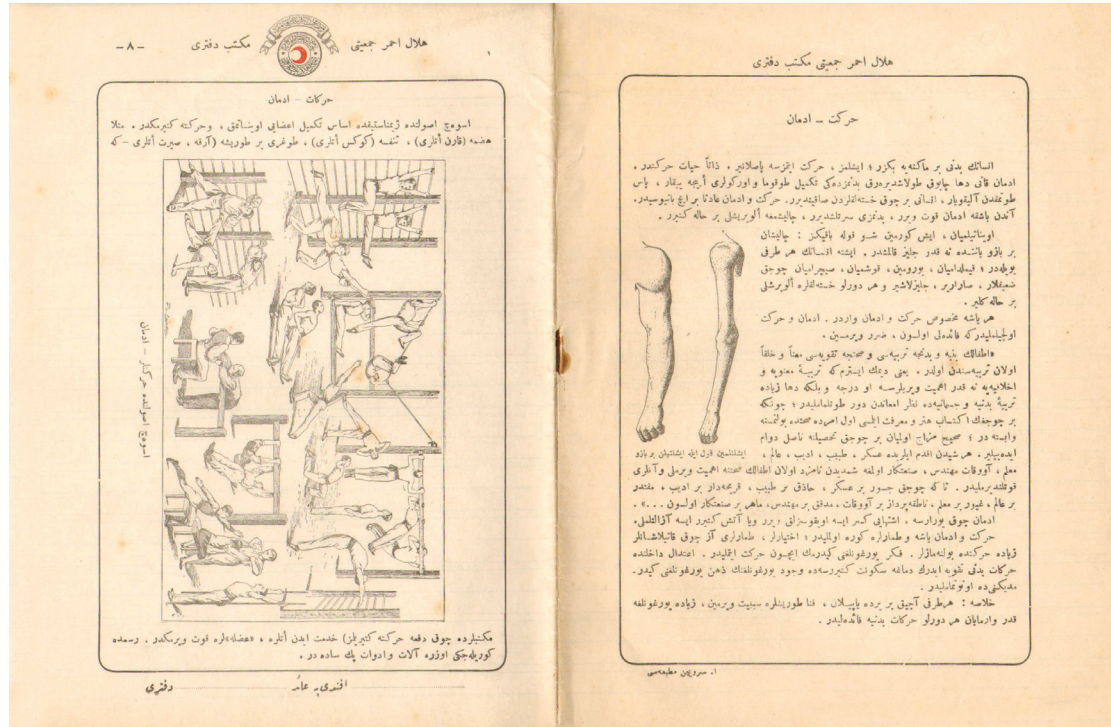 هلال احمر جمعيتی مكتب دفتری
حركت – ادمان
انسانك بدنی بر ماكنه‌يه بكزر ؛ ايشلمز ، حركت ايتمزسه پاصلانير . ذاتاً حيات حركتدر .
ادمان قانی دها چابوق طولاشديره‌رق بدنمزده‌كی تكميل طوقوما و اوركولری أيجه ييقار ، پاس
طوتمقدن آليقويار ، انسانی بر چوق خسته‌لقلردن صاقينديرر. حركت و ادمان عادتا بر ايچ بانيوسيدر.
آندن باشقه ادمان قوت ويرر ، بدنمزی سرتلشديرر ، چاليشمغه ألويريشلی بر حاله كتيرر .
اوينانيلميان ، ايش كورمين شو قوله باقيكز : چاليشان
بر بازو ياننده نه قدر جليز قالمشدر . ايشته انسانك هر طرفی
بويله‌در ؛ قيملداميان ، يورومين ، قوشميان ، صيچراميان چوجق
ضعيفلار ، صارارير ، جليزلاشير و هر دورلو خسته‌لقلره ألويرشلی
بر حاله كلير .
هر ياشه مخصوص حركت و ادمان واردر . ادمان و حركت
اولچيلميليدر كه فائده‌لی اولسون ، ضرر ويرمسين .
«اطفالك بنيه و بدنجه تربيه‌سی و صحتجه تقويه‌سی معناً و خلقاً
اولان تربيه‌سندن اولدر . يعنی ديمك ايسترم كه تربيهٔ معنويه و
اخلاقيه‌يه نه قدر اهميت ويريلرسه او درجه و بلكه دها زياده
تربيهٔ بدنيه و جسمانيه‌ده نظر امعاندن دور طوتلماملیدر ؛ چونكه
بر چوجغك اكتساب هنر و معرفت ايتمسی اول امرده صحتده بولنمسنه
وابسته در ؛ صحيح المزاج اوليان بر چوجق تحصيلنه ناصل دوام
ايده‌بيلير. هر شيدن اقدم ايلريده عسكر ، طبيب ، اديب ، عالم ،
ايشلتلمين قول ايله ايشلتيلن بر بازو
معلم ، آووقات مهندس ، صنعتكار اولمغه شمديدن نامزد اولان اطفالك صحتنه اهميت ويرملی و آنلری
قوتلنديرمليدر . تا كه چوجق جسور بر عسكر ، حاذق بر طبيب ، قريحه‌دار بر اديب ، مقتدر
بر عالم ، غيور بر معلم ، ناطقه‌پرداز بر آووقات ، مدقق بر مهندس، ماهر بر صنعتكار اولسون ...» .
ادمان چوق يورارسه ، اشتهایی كسر ايسه اويقوسزلق ويرر ويا آتش كتيرر ايسه آزالتلملی.
حركت و ادمان ياشه و طمارلره كوره اولمليدر ؛ اختيارلر ، طمارلری آز چوق قاتيلاشانلر
زياده حركتده بولنه‌مازلر . فكر يورغونلغنی كيدرمك ايچون حركت ايتمليدر . اعتدال داخلنده
حركات بدنی تقويه ايدرك دماغه سكونت كتيررسه‌ده وجود يورغونلغنك ذهن يورغونلغنی كيدر-
مديكنی ده اونوتماملیدر .
خلاصه : هر طرفی آچيق بر يرده ياپيلان ، فنا طورينلره سببيت ويرمين ، زياده يورغونلغه
قدر وارمايان هر دورلو حركات بدنيه فائده‌ليدر .
ا. سرويچن مطبعه‌سی
هلال احمر جمعيتی مكتب دفتری –٨–
حركات – ادمان
اسوه‌چ اصولنده ژيمناستيقده اساس تكميل اعضايی اويناتمق ، وحركته كتيرمكدر . مثلا
هضمه (قارن أتلری) ، تنفسه (كوكس أتلری) ، طوغری بر طوريشه (آرقه ، صيرت أتلری – كه
اسوه‌چ اصولنده حركتلر – ادمان
مكتبلرده چوق دفعه حركته كتيريلمز) خدمت ايدن أتلره ، «عضله»لره قوت ويرمكدر . رسمده
كوريله‌جكی اوزره آلات و ادوات پك ساده در .
افندی‌يه عائد دفتری